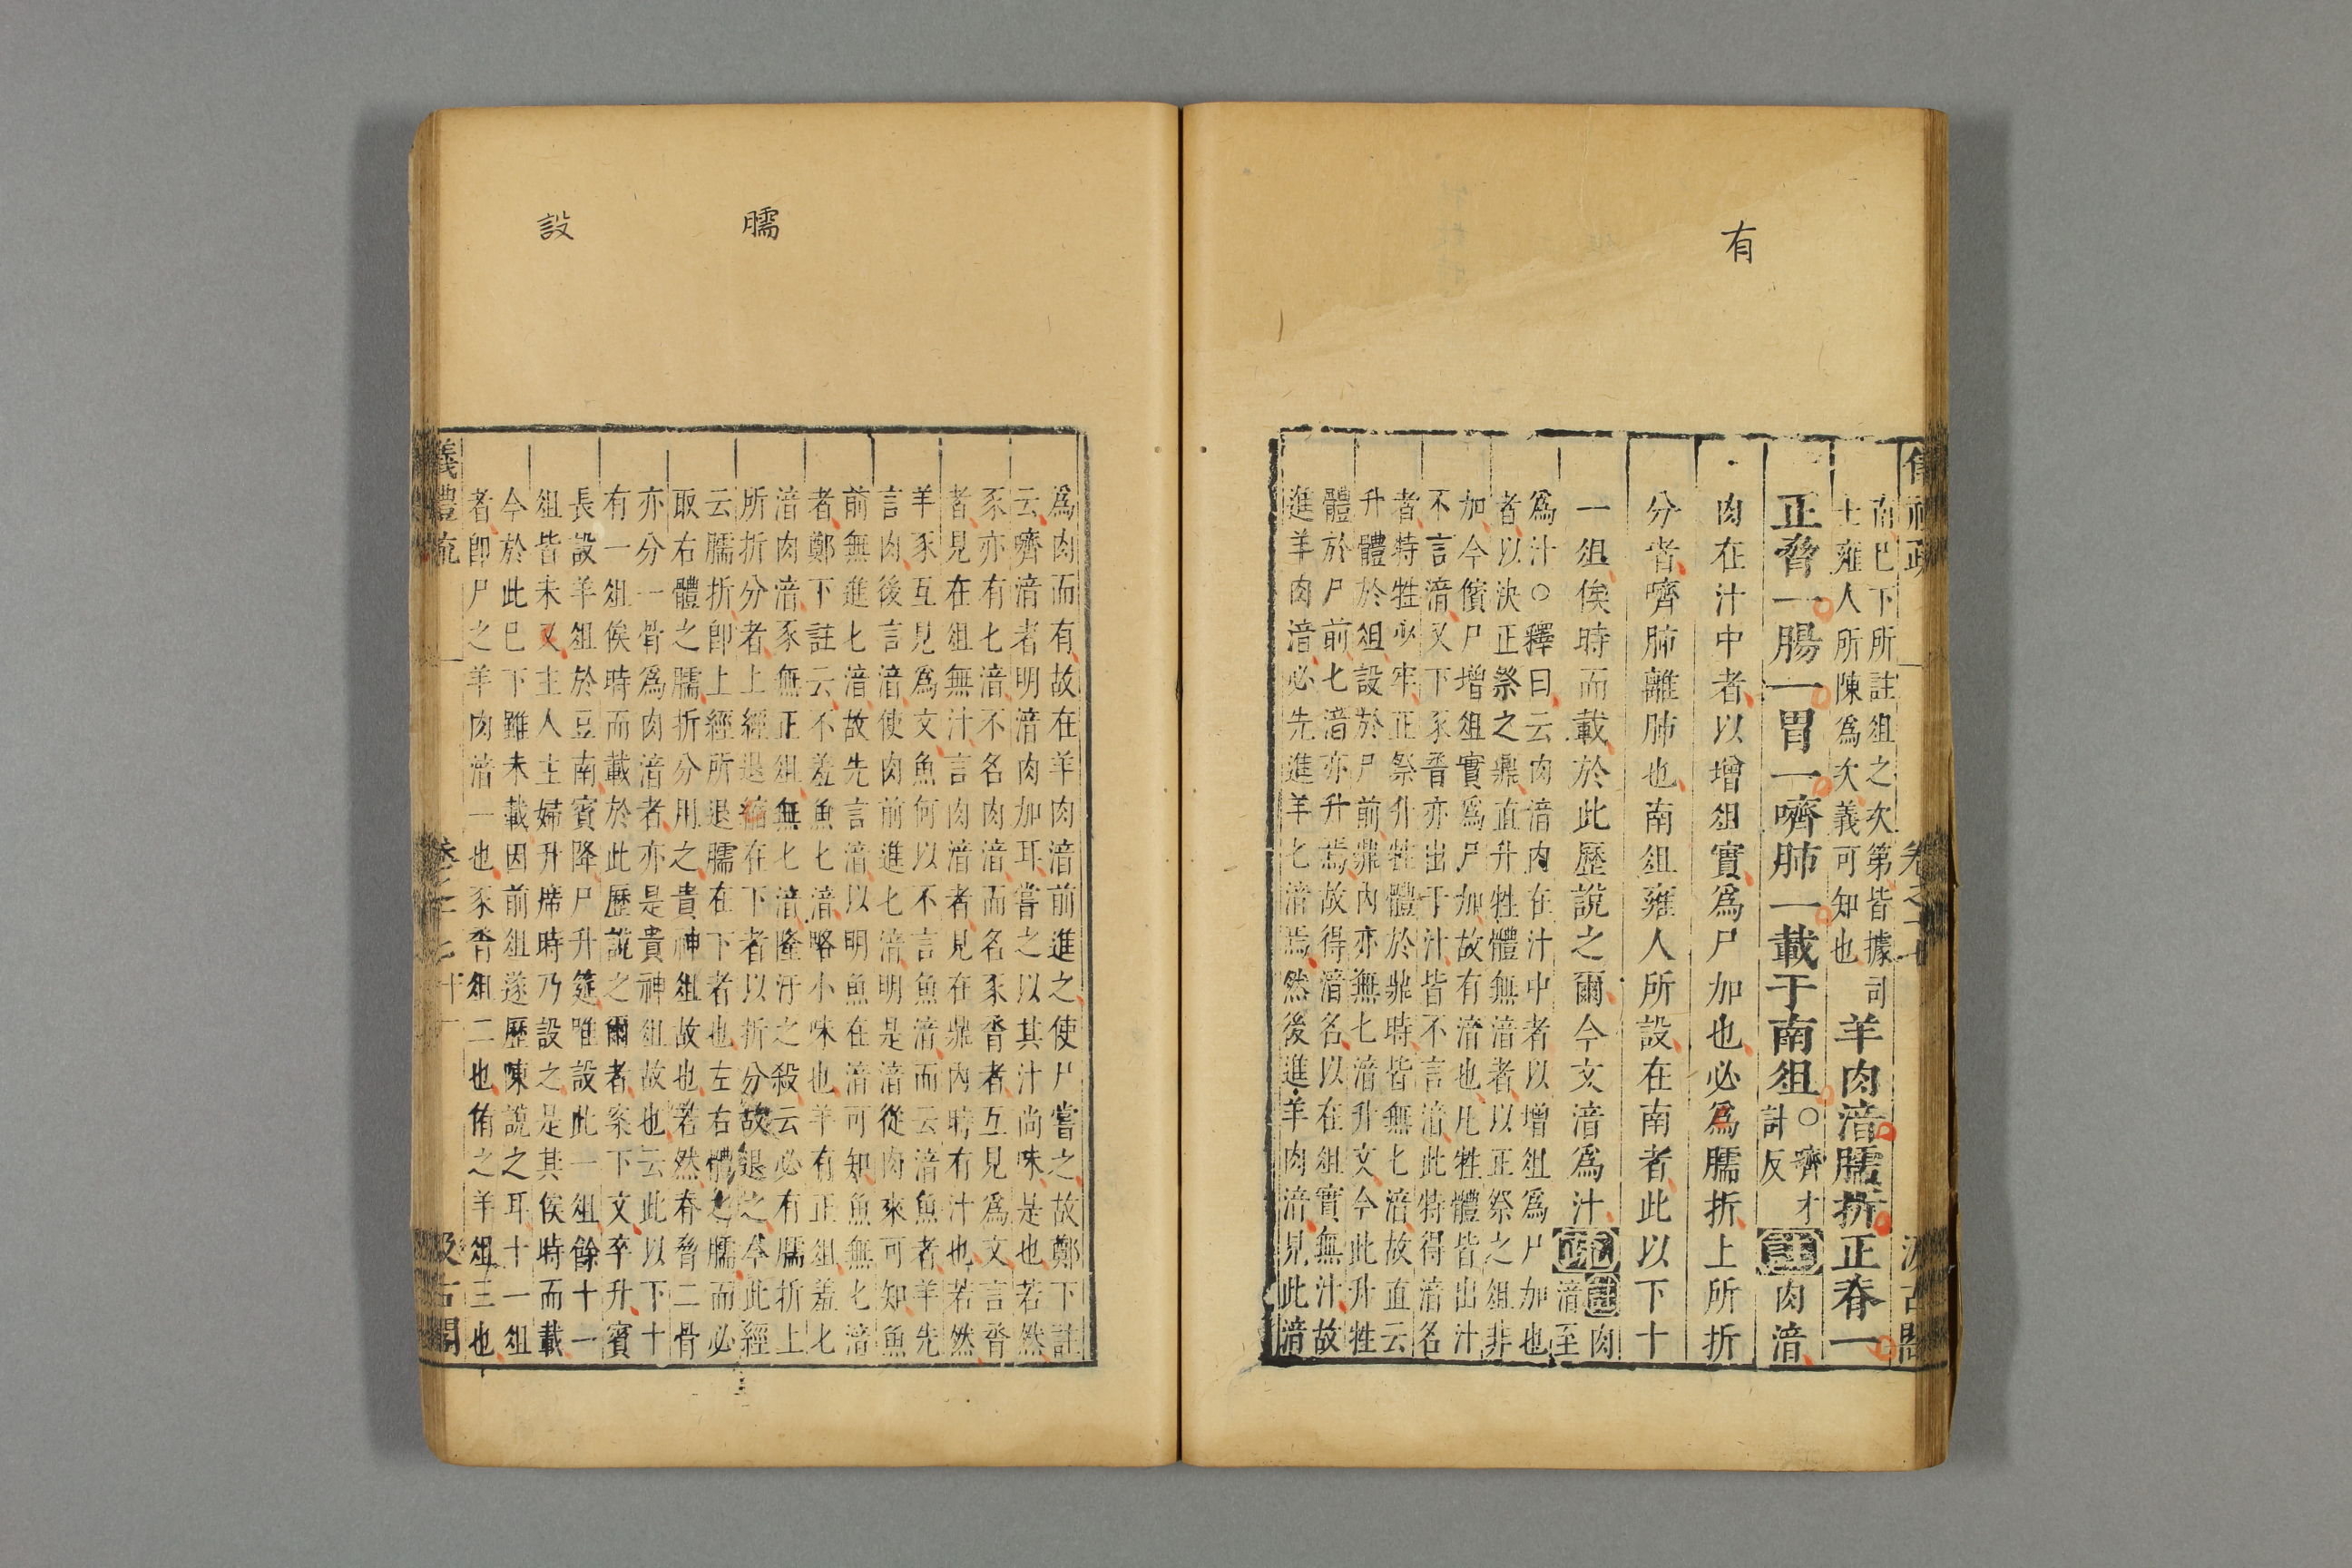 有
南巳下所註俎之次第皆據司
士雍人所陳爲次義可知也
羊肉湆臑折正脊一
正脅一腸一胃一嚌肺一載于南俎
○嚌才
計反
註
肉湆
肉在汁中者以增俎實爲尸加也必爲臑折上所折
分者嚌肺離肺也南俎雍人所設在南者此以下十
一俎俟時而載於此歷說之爾今文湆爲汁
疏
註肉
湆至
爲汁○釋曰云肉湆肉在汁中者以增俎爲尸加也
者以決正祭之鼎直升牲體無湆者以正祭之俎非
加今儐尸增俎實爲尸加故有湆也凡牲體皆出汁
不言湆又下豕脀亦出于汁皆不言湆此特得湆名
者特牲少牢正祭升牲體於鼎時皆無匕湆故直云
升體於俎設於尸前鼎內亦無匕湆升文今此升牲
體於尸前匕湆亦升焉故得湆名以在俎實無汁故
進羊肉湆必先進羊匕湆焉然後進羊肉湆見此湆
臑
設
爲肉而有故在羊肉湆前進之使尸嘗之故鄭下註
云嚌湆者明湆肉加耳嘗之以其汁尚味是也若然
豕亦有匕湆不名肉湆而名豕脀者互見爲文言脀
者見在俎無汁言肉湆者見在鼎內時有汁也若然
羊豕互見爲文魚何以不言魚湆而云湆魚者羊先
言肉後言湆使肉前進匕湆明是湆從肉來可知魚
前無進匕湆故先言湆以明魚在湆可知魚無匕湆
者鄭下註云不羞魚匕湆略小味也羊有正俎羞匕
湆肉湆豕無正俎無匕湆隆汙之殺云必有臑折上
所折分者上經退縮在下者以折分故退之今此經
云臑折卽上經所退臑在下者也左右體之臑而必
取右體之臑折分用之貴神俎故也若然脊脅二骨
亦分一骨爲肉湆者亦是貴神俎故也云此以下十
有一俎俟時而載於此歷說之爾者案下文卒升賓
長設羊俎於豆南賓降尸升筵唯設此一俎餘十一
俎皆未又主人主婦升席時乃設之是其俟時而載
今於此巳下雖未載因前俎遂歷陳說之耳十一俎
者卽尸之羊肉湆一也豕脀俎二也侑之羊俎三也